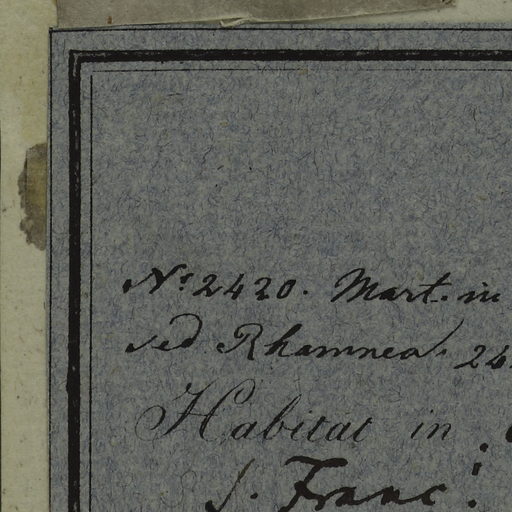 Nr 2420. Mart. in
sed Rhamnea. 24
Habitat in
s. Franc: